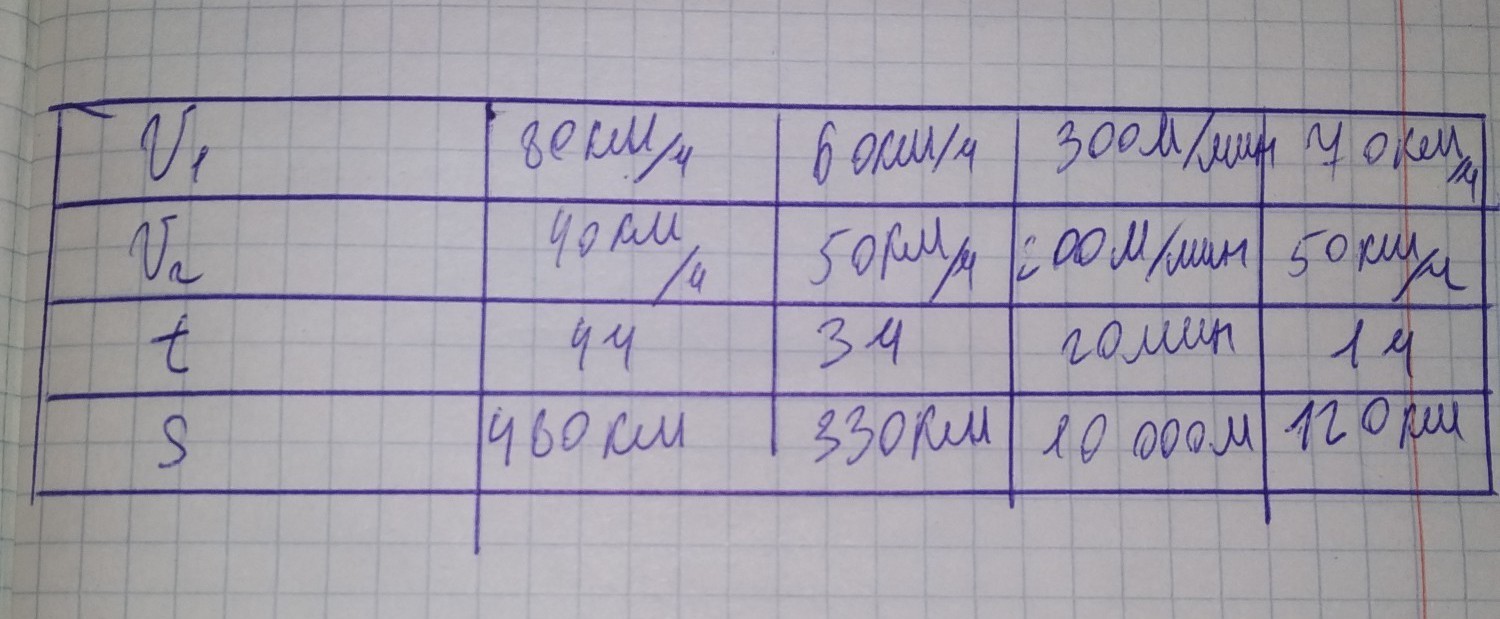 V₁ 80 км/ч 60 км/ч 300 м/мин 70 км/ч
V₂ 40 км/ч 50 км/ч 200 м/мин 50 км/ч
t 4 ч 3 ч 20 мин 1 ч
S 480 км 330 км 10 000 м 120 км